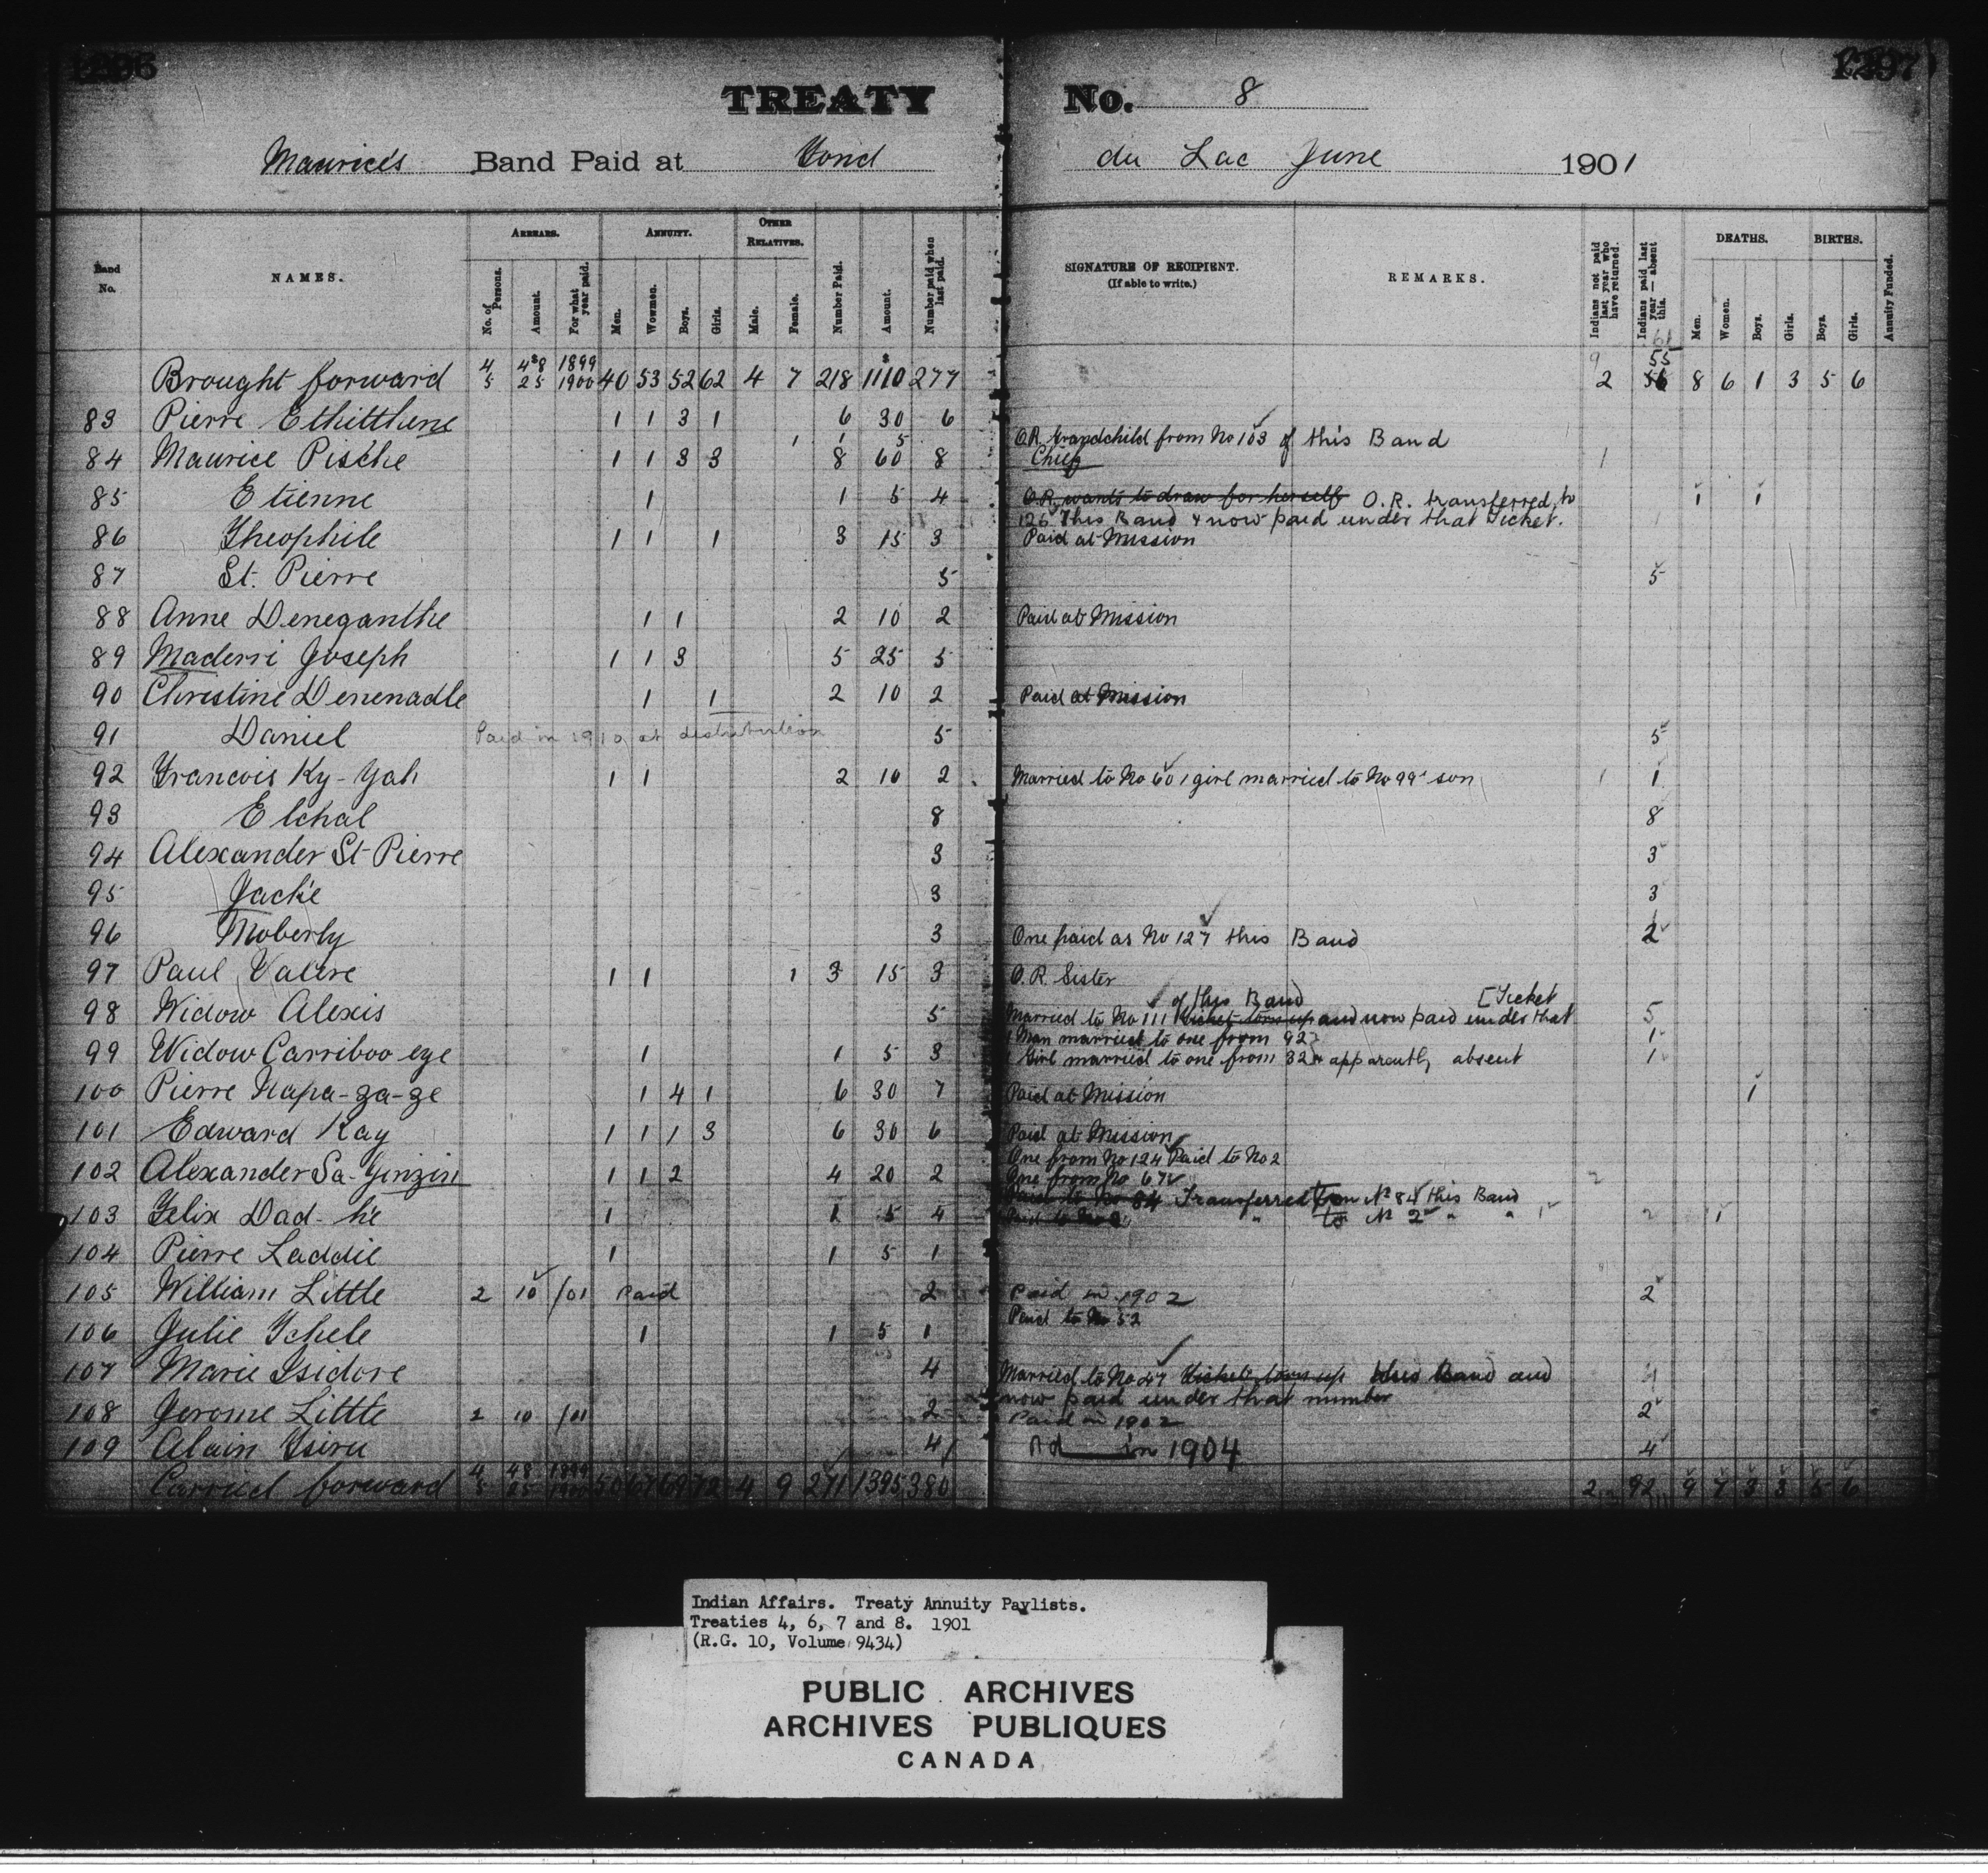 1296
1297
TREATY No. 8
Maurice's Band Paid at Fond du Lac June 1901
Band No.
NAMES.
ARREARS.
No. of Persons.
Amount.
For what year paid.
ANNUITY.
Men.
Wowmen.
Boys.
Girls.
OTHER RELATIVES.
Male.
Female.
Number Paid.
Amount.
Number paid when last paid.
SIGNATURE OF RECIPIENT.
(If able to write.)
REMARKS.
Indians not paid last year who have returned.
Indians paid last year — absent this.
DEATHS.
Men.
Women.
Boys.
Girls.
BIRTHS.
Boys.
Girls.
Annuity Funded.
Brought forward 4 $48 1899 5 25 1900 40 53 52 62 4 7 218 $1110 277 2 55 8 6 1 3 5 6
83 Pierre Ethitthene 1 1 3 1 6 30 6
1 1 5 O.R. Grandchild from No 103 of this Band
84 Maurice Pische 1 1 3 3 8 60 8 Chief 1
85 Etienne 1 1 5 4 O.R. wants to draw for herself O.R. transferred to 1 1
126 This Band & now paid under that Ticket.
86 Theophile 1 1 1 3 15 3 Paid at Mission
87 St. Pierre 5 5
88 Anne Deneganthe 1 1 2 10 2 Paid at Mission
89 Maderri Joseph 1 1 3 5 25 5
90 Christine Denenadle 1 1 2 10 2 Paid at Mission
91 Daniel Paid in 1910 at distribution 5 5
92 Francois Ky-Yah 1 1 2 10 2 Married to No 60 1 girl married to No 99 son 1 1
93 Elchal 8 8
94 Alexander St Pierre 3 3
95 Jackie 3 3
96 Moberly 3 One paid as No 127 this Band 2
97 Paul Valere 1 1 1 3 15 3 O.R. Sister
of this Band [Ticket
98 Widow Alexis 5 Married to No 111 Ticket torn up and now paid under that 5
1 Man married to one from 92 1
99 Widow Carriboo eye 1 1 5 3 1 Girl married to one from 32 & apparently absent 1
100 Pierre Napa-za-ze 1 4 1 6 30 7 Paid at Mission 1
101 Edward Kay 1 1 1 3 6 30 6 Paid at Mission
One from No 124 Paid to No 2
102 Alexander Sa-Ginzin 1 1 2 4 20 2 One from No 67 2
Paid to No 84 Transferred from No 84 this Band
103 Felix Dad-he 1 1 5 4 Paid to No 2 " to No 2 " " 1 2 1
104 Pierre Laddie 1 1 5 1
105 William Little 2 10 /01 Paid 2 Paid in 1902 2
Paid to No 52
106 Julie Ichele 1 1 5 1
107 Marie Isidore 4 Married to No 47 Ticket torn up this Band and 4
now paid under that number
108 Jerome Little 2 10 /01 2 Paid in 1902 2
109 Alain Isiru 4 Pd in 1904 4
Carried forward 4 48 1899 5 25 1900 50 67 69 72 4 9 271 1395 380 2 92 9 7 3 3 5 6
Indian Affairs. Treaty Annuity Paylists.
Treaties 4, 6, 7 and 8. 1901
(R.G. 10, Volume 9434)
PUBLIC ARCHIVES
ARCHIVES PUBLIQUES
CANADA